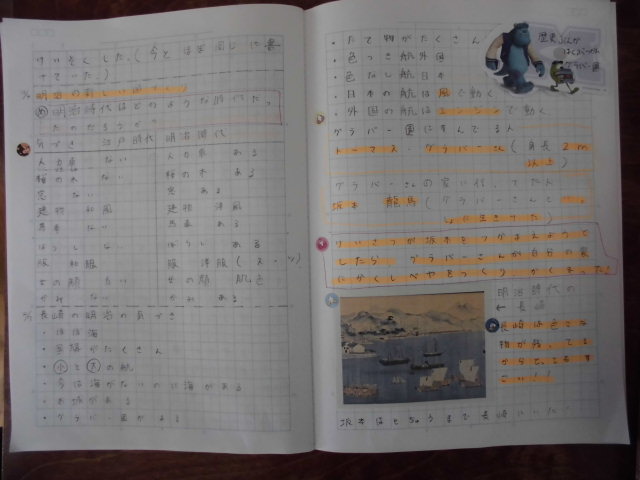 けいぞくした。(今と ほぼ同じに書
さていた)
明治の新しい国づくり
め 明治時代はどのような時代だっ
たのだろうか?
気づき 江戸時代 明治時代
人力車 ない 人力車 ある
桜の木 ない 桜の木 ある
窓 ない 窓 ある
建物 和風 建物 洋風
馬車 ない 馬車 ある
ぼうし ない ぼうし ある
服 和服 服 洋服(スーツ)
女の顔 白い 女の顔 肌色
かさ ない かさ ある
長崎の明治の気づき
・ほぼ海
・工場がたくさん
・小と大の船
・今は海がないのに海がある
・お城がある
・グラバー園がある
・たて物がたくさん
・色つき船外国
・色なし船日本
・日本の船は風で動く
・外国の船はエンジンで動く
グラバー園にすんでる人
トーマス グラバーさん(身長2m
以上)
グラバーさんの家に住んでた人
坂本 龍馬(グラバーさんと
しょに生きてた)
けいさつが坂本をつかまえようと
したら グラバーさんが自分の家
にかくしべやをつくりかくまった!
明治時代の
←長崎
長崎は色んな
物が残ってる
からとってもす
ごい!!
坂本はとちゅうまで長崎にいた
歴史 しんぶん
はくぶつかん
グラバー園